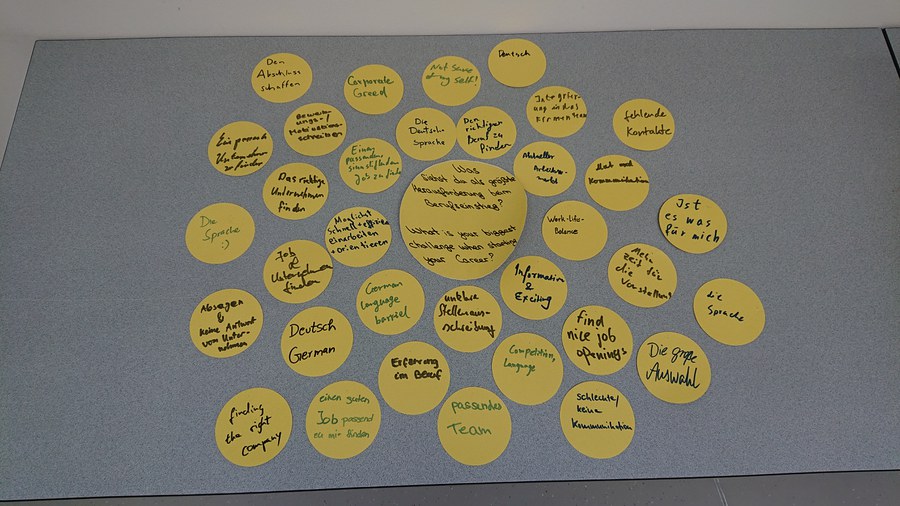 Den
Abschluss
schaffen
Corporate
Greed
Not Sure
of my self!
Bewerb-
ungs-/
Motivations-
schreiben
Die
Deutsche
Sprache
Den
richtigen
Beruf zu
finden
fehlende
Kontakte
Unternehmen
zu finden
Einen
passenden
Job zu finden
Aktueller
Arbeits-
markt
Kommunikation
Das richtige
Unternehmen
finden
Was
siehst du als größte
Herausforderung beim
Berufseinstieg?
What is your biggest
challenge when starting
your Career?
Die
Sprache
:)
Möglichst
schnell + effektiv
einarbeiten
+ orientieren
Work-Life-
Balance
Ist
es was
für mich
Job
&
Unternehmen
finden
German
language
barriel
Information
& Exciting
Mehr
zeit für
die
Absagen
&
keine Antwort
von Unter-
nehmen
Deutsch
German
unklare
Stellenaus-
schreibung
find
nice job
openings
die
Sprache
Erfahrung
im Beruf
Competition,
language
Die große
Auswahl
finding
the right
company
einen guten
Job passend
zu mir finden
passendes
Team
schlechte/
keine
Kommunikation